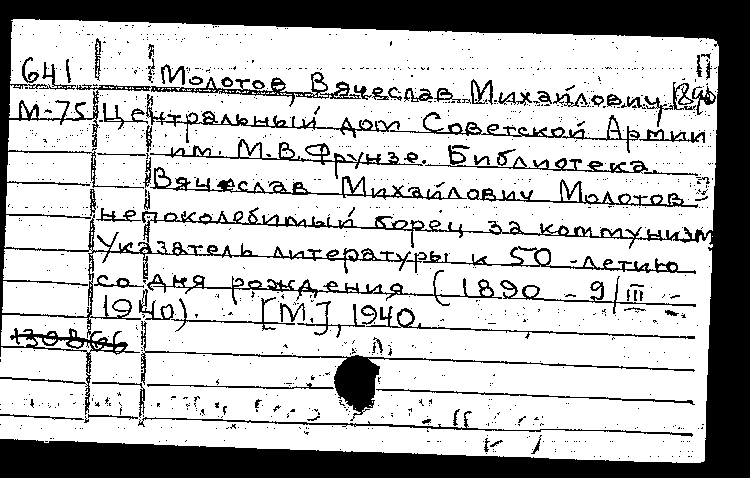 П
641 Молотов, Вячеслав Михайлович, 1890
М-75 Центральный дом Советской Армии
им. М.В.Фрунзе. Библиотека.
Вячеслав Михайлович Молотов -
непоколебимый борец за коммунизм
Указатель литературы к 50-летию
со дня рождения (1890 - 9/III -
1940). [М.], 1940.